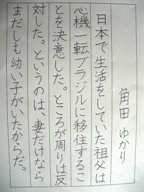 角田 ゆかり
日本で生活をしていた祖父は
心機一転ブラジルに移住するこ
とを決意した。ところが周りは反
対した。というのは、妻だけなら
まだしも幼い子がいたからだ。